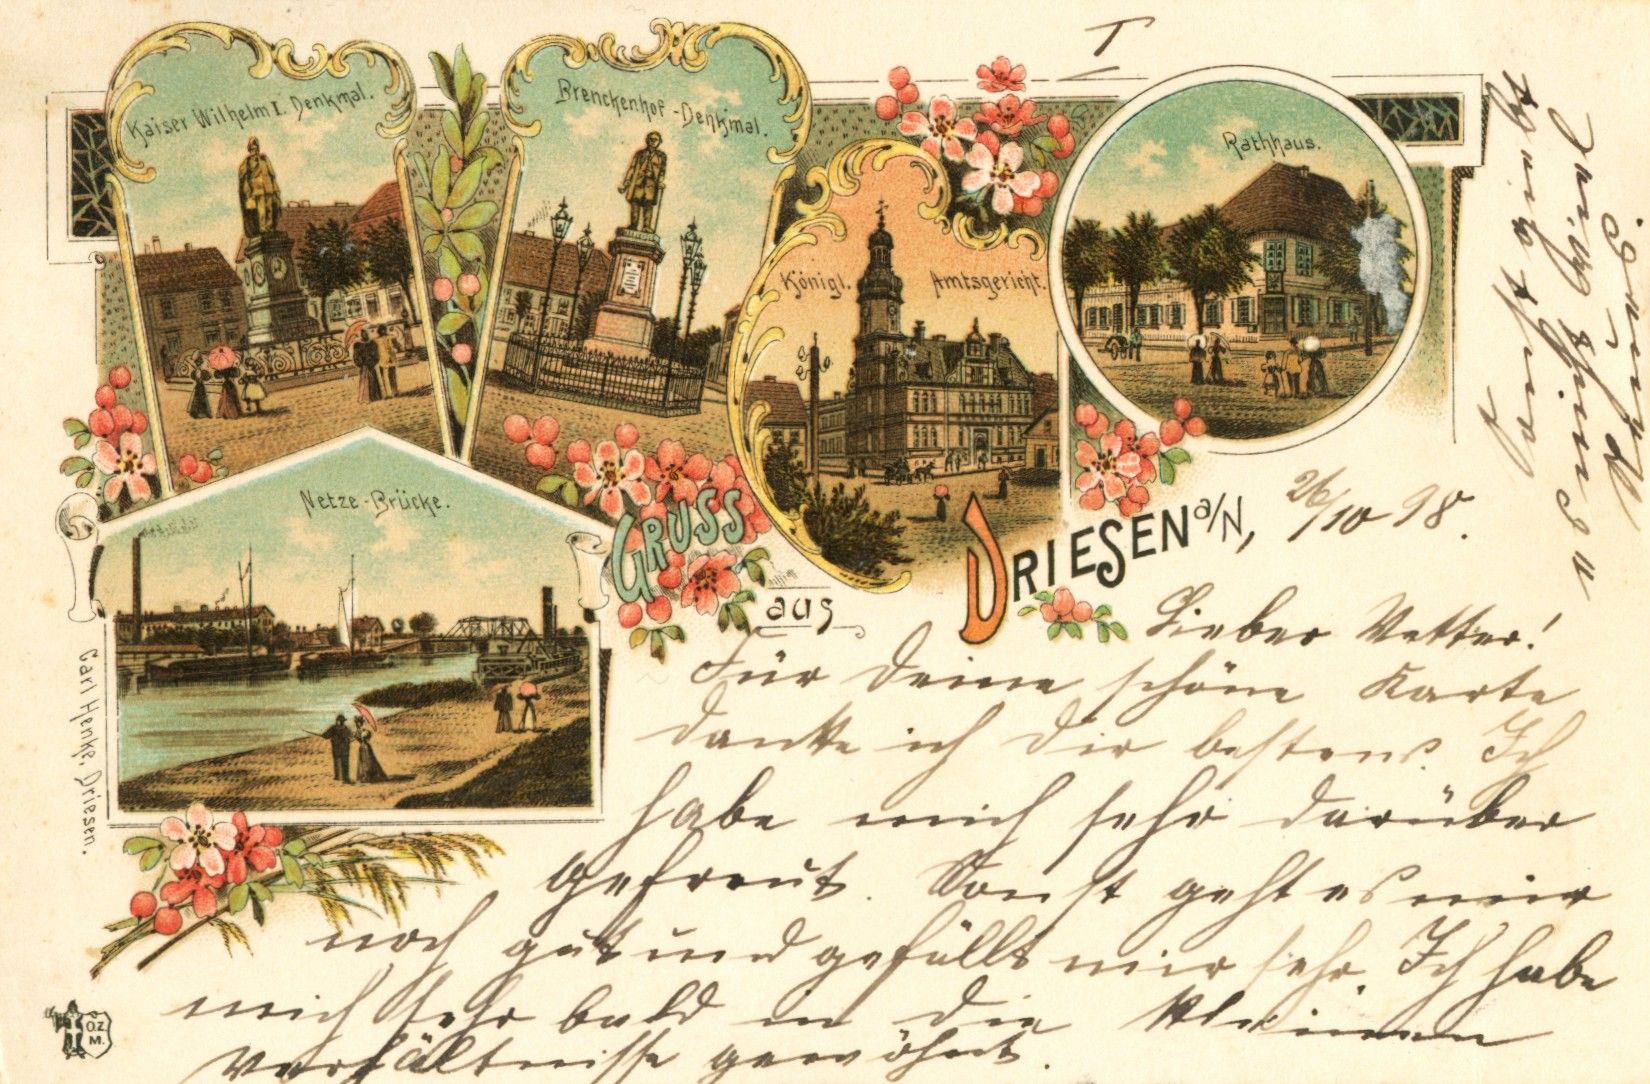 Kaiser Wilhelm I. Denkmal.
Brenckenhof-Denkmal.
Königl. Amtsgericht.
Rathhaus.
Netze-Brücke.
GRUSS
aus
DRIESEN a/N, 26/10 98.
Carl Henke, Driesen.
O.Z.
M.
Lieber Vetter!
Für Deine schöne Karte
danke ich Dir bestens. Ich
habe mich sehr darüber
gefreut. Sonst geht es mir
noch gut und gefällt mir sehr. Ich habe
mich sehr bald in die kleinen
Verhältnisse gewöhnt.